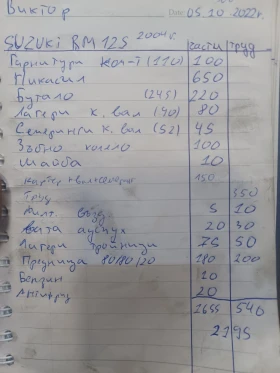 Виктор Date: 05 10 2022г.
SUZUKI RM 125 2004г части труд
Гарнитури Ком-т (110) 100
Никасил 650
Бутало (245) 220
Лагери к. вал (90) 80
Семеринги к. вал (52) 45
Зъбно колело 100
Шайба 10
Картер 150
Труд 350
Филт. възд. 5 10
Вата ауспух 20 30
Лагери тройници 75 50
Предница 80/80/20 180 200
Бензин 10
Антифриз 20
1655 540
2195